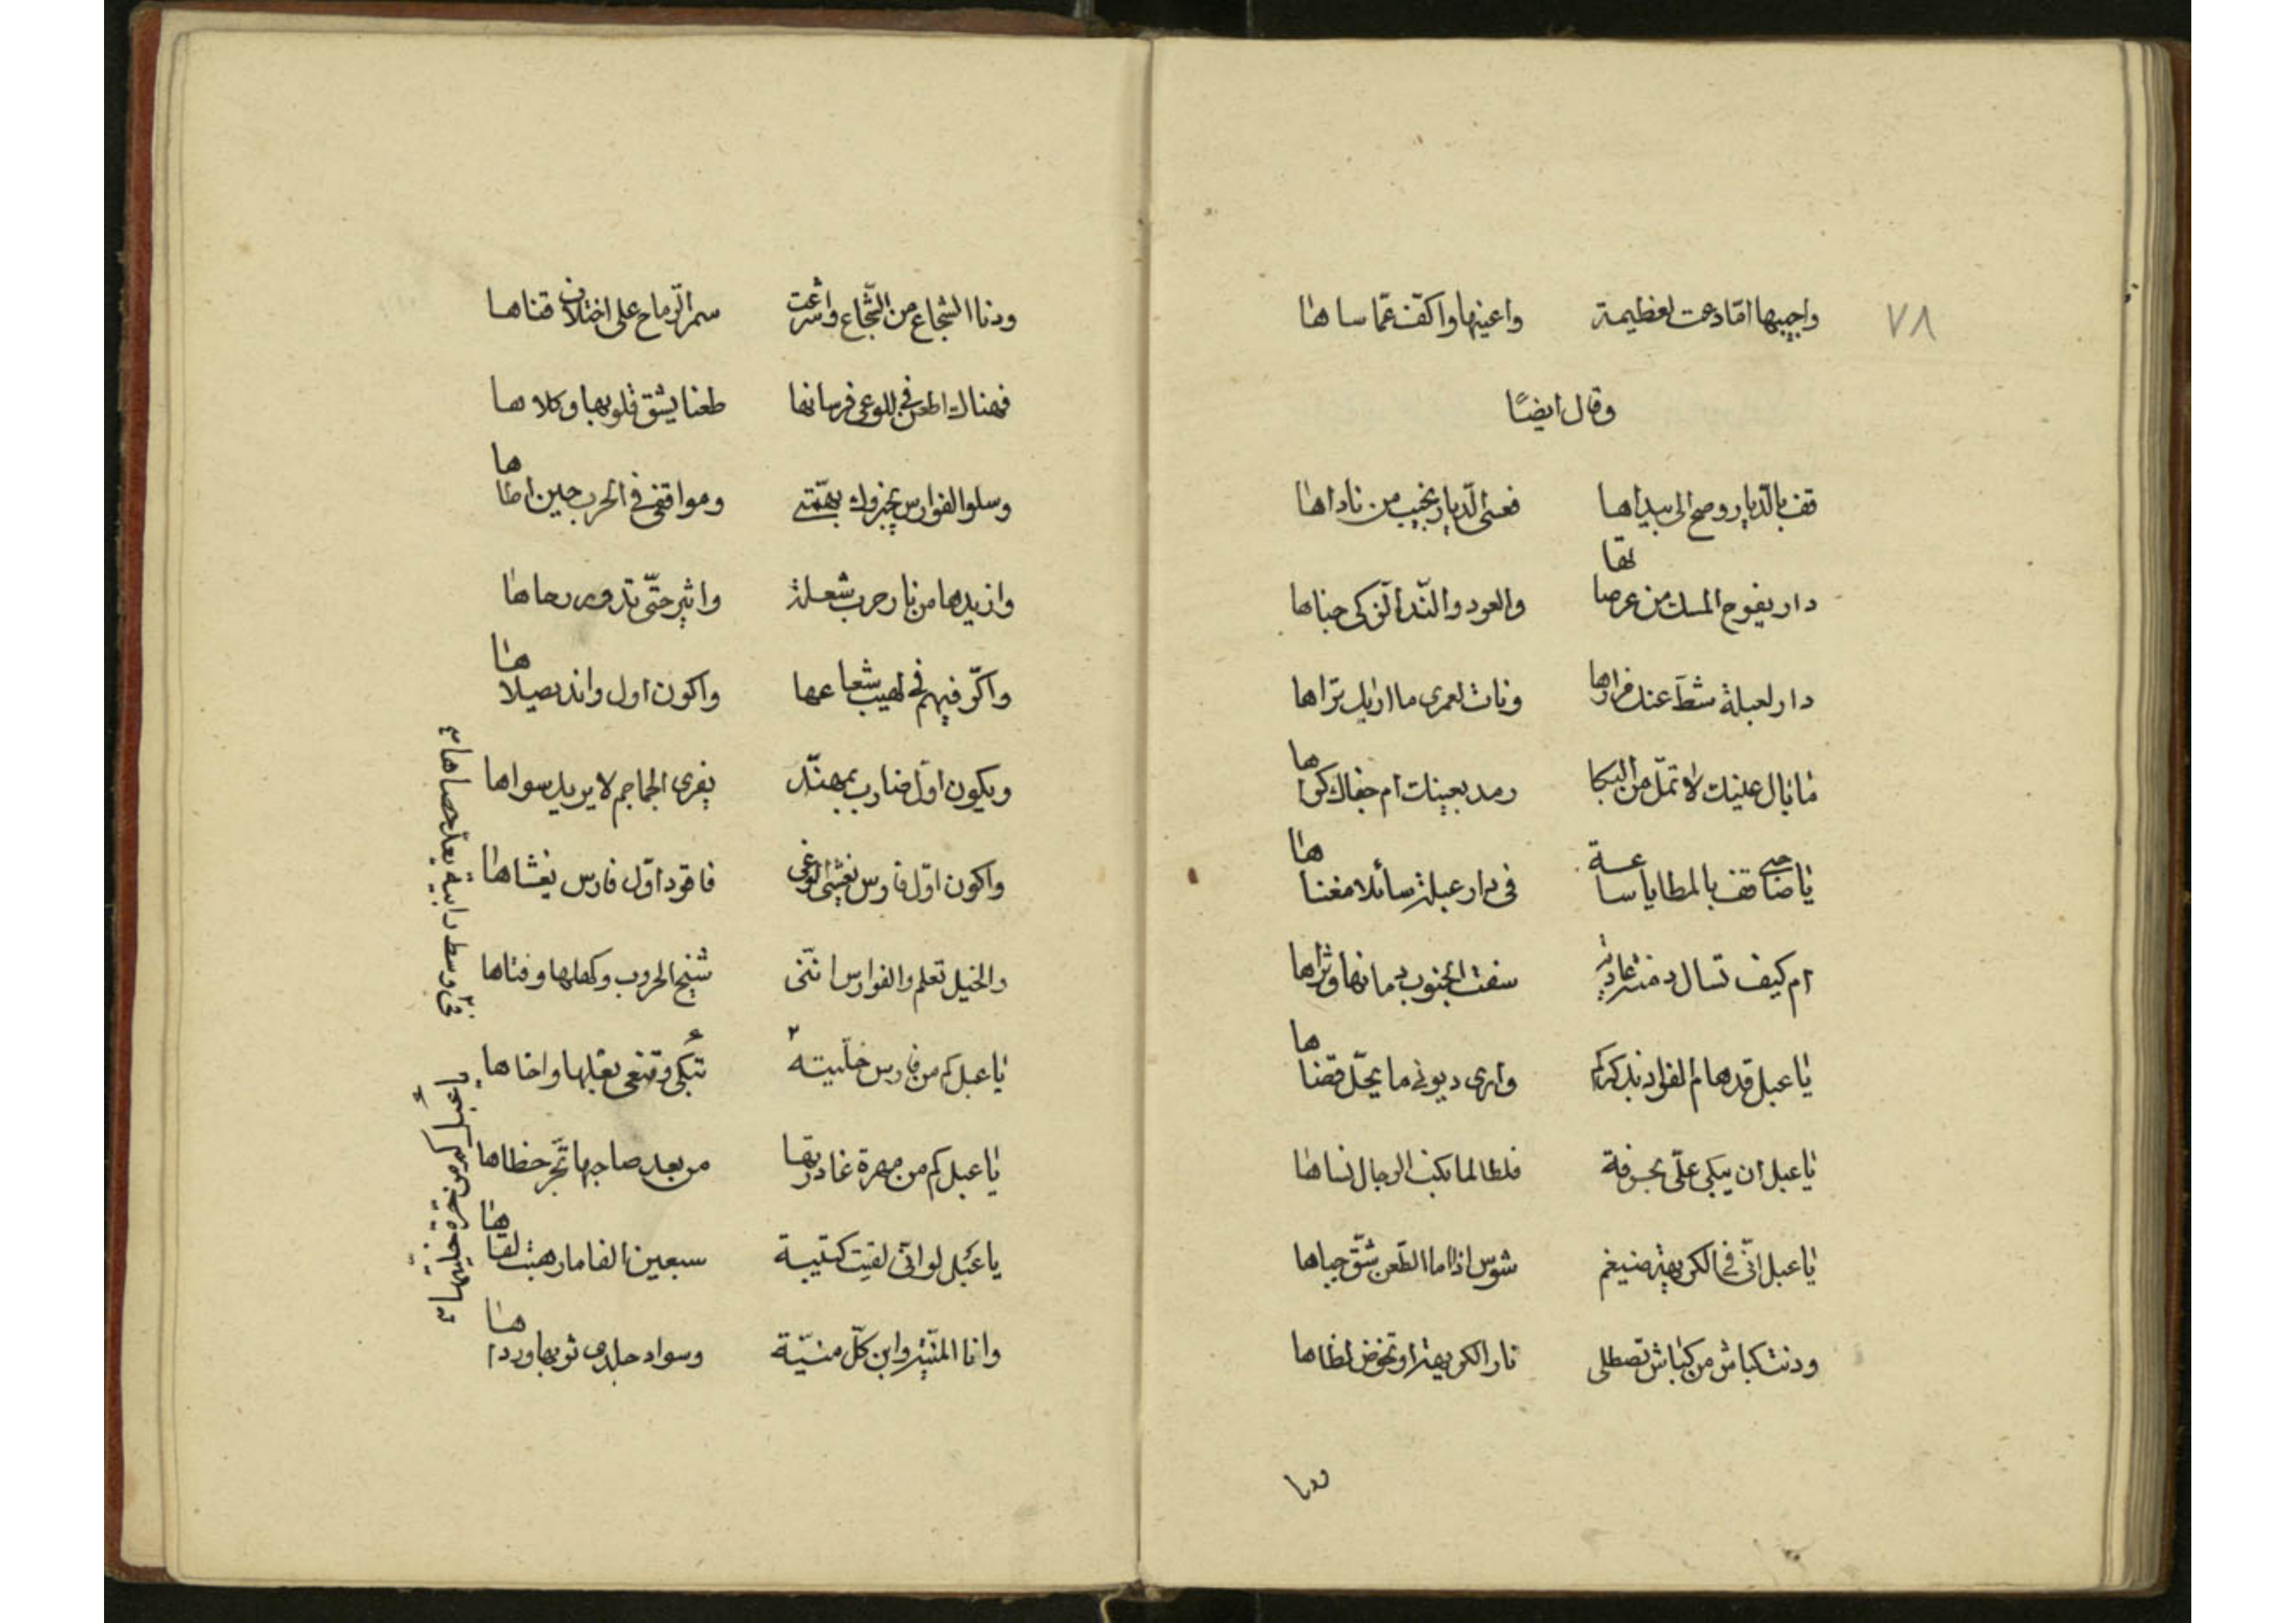 ٧٨
واجيبها امّا دعت لعظيمة واعينها واكفّ عمّا ساها
وقال ايضًا
قف بالدّيار وصح الى بيداها فعسى الدّيار تجيب من ناداها
دار يفوح المسك من عرصاتها والعود والنّد الذّكى جناها
دار لعبلة شطّ عنك مزارها ونات لعمرى ما اراك تراها
ما بال عينك لا تملّ من البكا رمد بعينك ام جفاك كراها
يا صاحبى قف بالمطايا ساعة فى دار عبلة سائلا مغناها
ام كيف تسال دمنة عادية سفت الجنوب دمانها وثراها
يا عبل قد هام الفواد بذكركم وارى ديونى ما يحلّ قضاها
يا عبل ان يبكى علىّ بحرقة فلطالما بكت الرجال نساها
يا عبل انّى فى الكريهة ضيغم شرس اذا ما الطّعن شقّ جباها
ودنت كباش من كباش تصطلى نار الكريهة او تخوض لظاها
ودنا
ودنا الشجاع من الشّجاع واشرعت سمر الرّماح على اختلاف قناها
فهناك اطعن فى الوغى فرسانها طعنا يشق قلوبها وكلاها
وسلو الفوارس يخبروك بهمّتى ومواقفى فى الحرب حين اطاها
وازيدها من نار حرب شعلة واثير حتّى تدور رحاها
واكرّ فيهم فى لهيب شعاعها واكون اول وافد يصلاها
ويكون اوّل ضارب بمهنّد يفرى الجماجم لا يريد سواها
واكون اوّل فارس يغشى الوغى فاقود اوّل فارس يغشاها
والخيل تعلم والفوارس انّنى شيخ الحروب وكهلها وفتاها
يا عبل كم من فارس خلّيته
يا عبل كم من حرة خليتها
تبكى وتنعى بعلها واخاها
فى وسط رابية يعد حصاها
يا عبل كم من مهرة غادرتها من بعد صاحبها تجّر خطاها
يا عبل لو انّى لقيت كتيبة سبعين الفا ما رهبت لقاها
وانا المنيّة وابن كلّ منيّة وسواد جلدى ثوبها ورداها